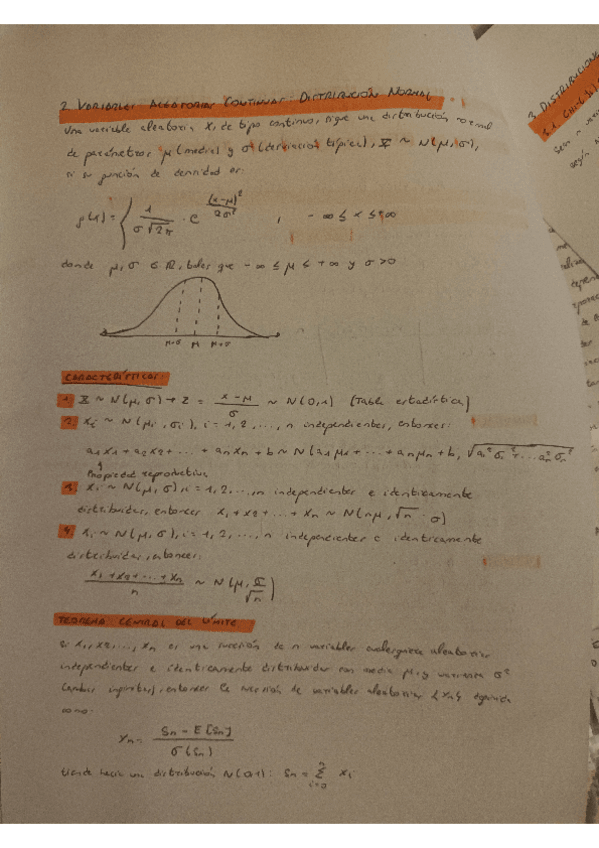 2. VARIABLES ALEATORIAS CONTINUAS: DISTRIBUCIÓN NORMAL
Una variable aleatoria X, de tipo continuo, sigue una distribución normal
de parámetros μ (media) y σ (desviación típica), X ~ N(μ, σ),
si su función de densidad es:
f(x) = { 1 / σ√2π · e^(x-μ)² / 2σ² , -∞ ≤ x ≤ +∞
donde μ, σ ∈ ℝ, tales que -∞ ≤ μ ≤ +∞ y σ > 0
μ-σ μ μ+σ
CARACTERÍSTICAS:
1. X ~ N(μ, σ) → Z = x-μ / σ ~ N(0,1) (Tabla estadística)
2. Xi ~ N(μi, σi), i = 1, 2, ..., n independientes, entonces:
a1x1 + a2x2 + ... + anxn + b ~ N(a1μ1 + ... + anμn + b, √a1²σ1² + ... an²σn²)
Propiedad reproductiva
3. Xi ~ N(μ, σ), i = 1, 2, ..., n independientes e identicamente
distribuidas, entonces: x1 + x2 + ... + xn ~ N(nμ, √n · σ)
4. Xi ~ N(μ, σ), i = 1, 2, ..., n independientes e identicamente
distribuidas, entonces:
x1 + x2 + ... + xn / n ~ N(μ, σ/√n)
TEOREMA CENTRAL DEL LÍMITE
Si X1, X2, ..., Xn es una sucesión de n variables aleatorias
independientes e identicamente distribuidas con media μ y varianza σ²
(ambas finitas), entonces la sucesión de variables aleatorias {Yn} definida
como:
Yn = Sn - E[Sn] / σ(Sn)
tiende hacia una distribución N(0,1): Sn = Σ xi
n
i=0
3. DISTRIBUCIONES